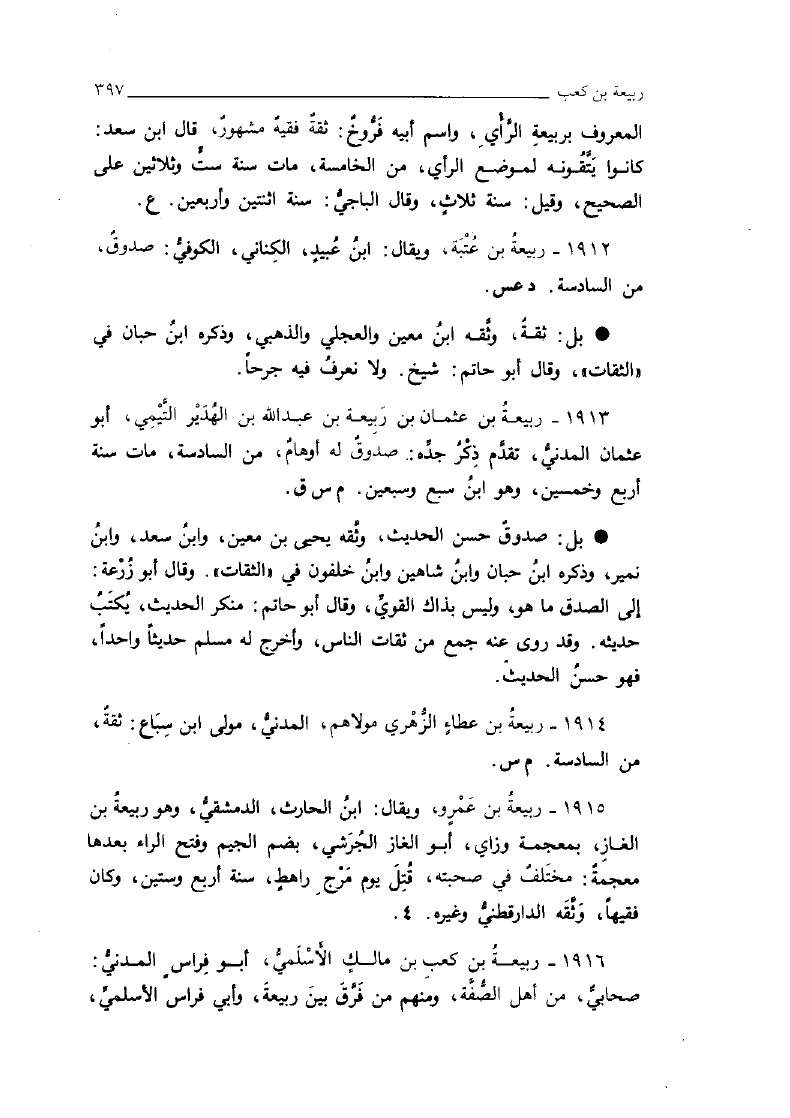 ربيعة بن كعب ٣٩٧
المعروف بربيعةِ الرَّأْي، واسم أبيه فَرُّوخٌ: ثقةٌ فقيهٌ مشهورٌ، قال ابن سعد:
كانوا يَتَّقُونه لموضع الرأي، من الخامسة، مات سنة ستٍّ وثلاثين على
الصحيح، وقيل: سنة ثلاثٍ، وقال الباجيُّ: سنة اثنتين وأربعين. ع.
١٩١٢ ـ ربيعةُ بن عُتْبَة، ويقال: ابنُ عُبيدٍ، الكِناني، الكوفيُّ: صدوقٌ،
من السادسة. د عس.
● بل: ثقةٌ، وثَّقه ابنُ معين والعجلي والذهبي، وذكره ابنُ حبان في
«الثقات»، وقال أبو حاتم: شيخ. ولا نعرفُ فيه جرحاً.
١٩١٣ ـ ربيعةُ بن عثمان بن رَبيعة بن عبدالله بن الهُدَيْر التَّيْمِي، أبو
عثمان المدنيُّ، تقدَّم ذِكْرُ جدِّه: صدوقٌ له أوهامٌ، من السادسة، مات سنة
أربع وخمسين، وهو ابنُ سبع وسبعين. م س ق.
● بل: صدوقٌ حسن الحديث، وثَّقه يحيى بن معين، وابنُ سعد، وابنُ
نمير، وذكره ابنُ حبان وابنُ شاهين وابنُ خلفون في «الثقات». وقال أبو زُرْعة:
إلى الصدق ما هو، وليس بذاك القويِّ، وقال أبو حاتم: منكر الحديث، يُكتَبُ
حديثه. وقد روى عنه جمع من ثقات الناس، وأخرج له مسلم حديثاً واحداً،
فهو حسنُ الحديث.
١٩١٤ ـ ربيعةُ بن عطاءٍ الزُّهْري مولاهم، المدنيُّ، مولى ابن سِبَاع: ثقةٌ،
من السادسة. م س.
١٩١٥ ـ ربيعةُ بن عَمْرٍو، ويقال: ابنُ الحارث، الدمشقيُّ، وهو ربيعةُ بن
الغازِ، بمعجمة وزاي، أبو الغاز الجُرَشي، بضم الجيم وفتح الراء بعدها
معجمةٌ: مختَلَفٌ في صحبته، قُتِلَ يوم مَرْجِ راهطٍ، سنة أربع وستين، وكان
فقيهاً، وَثَّقَه الدارقطنيُّ وغيره. ٤.
١٩١٦ ـ ربيعةُ بن كعبِ بن مالكٍ الأَسْلَميُّ، أبو فِراسٍ المدنيُّ:
صحابيٌّ، من أهل الصُّفَّة، ومنهم من فَرَّقَ بينَ ربيعةَ، وأبي فراس الأسلميِّ،